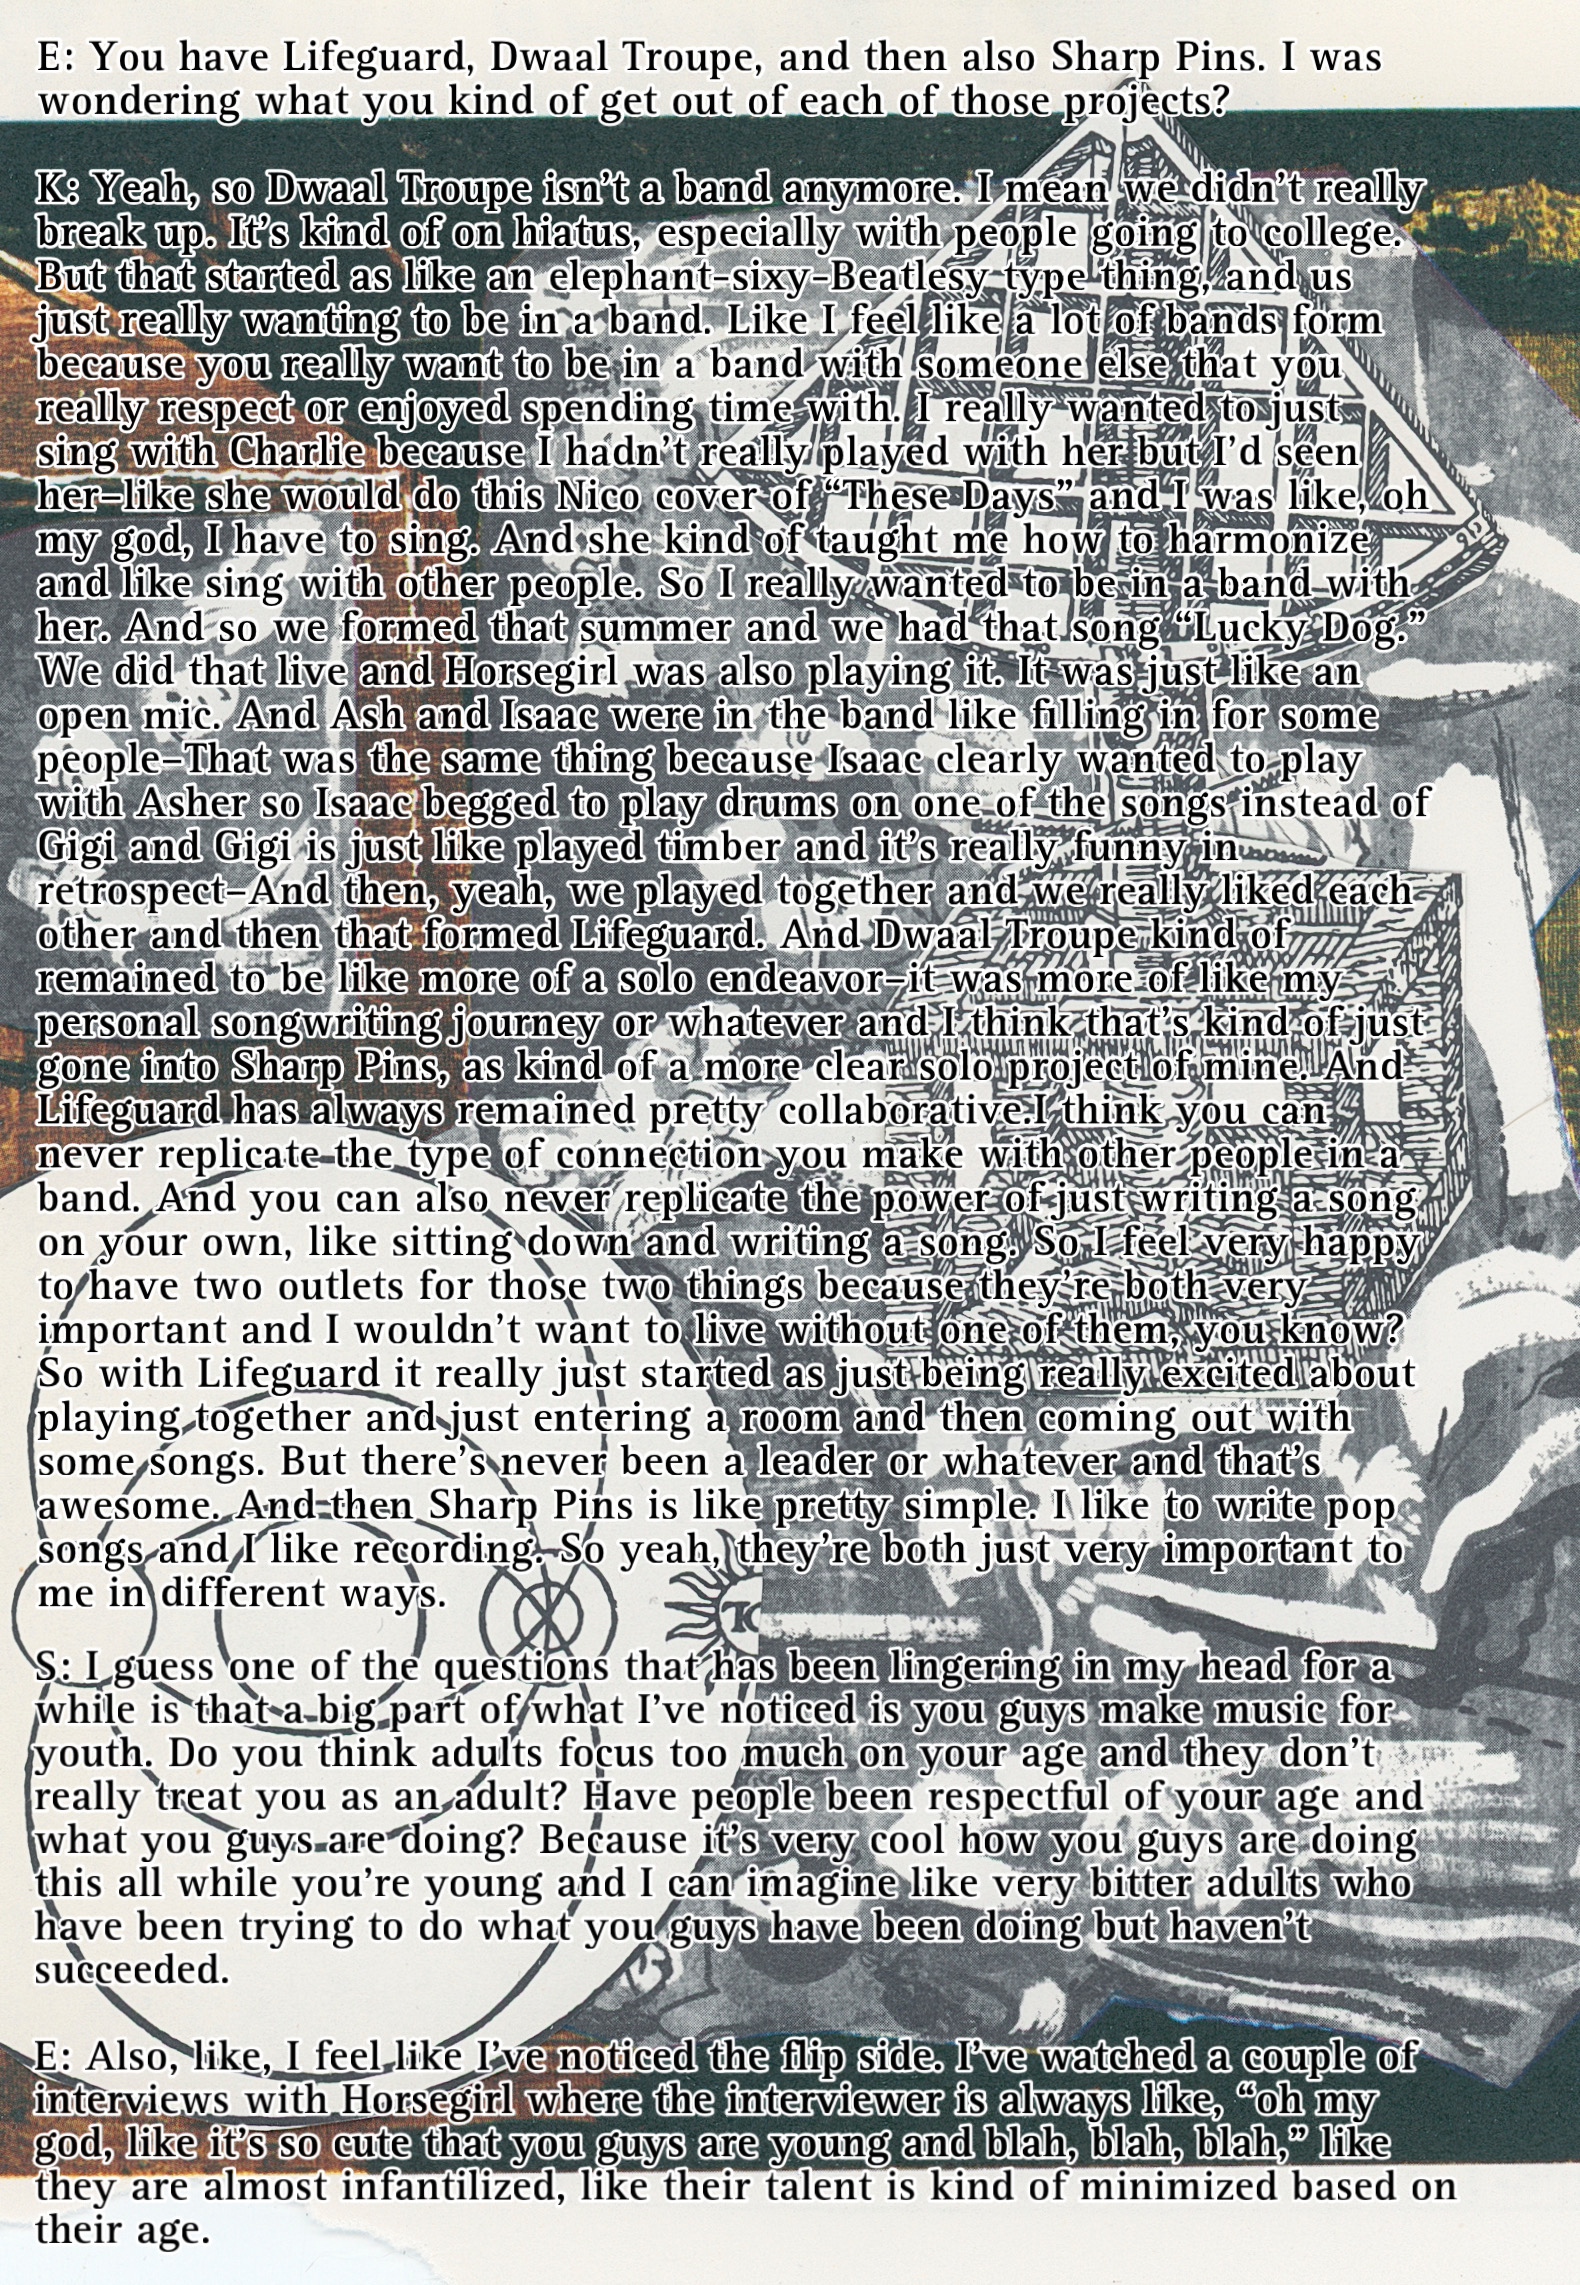 E: You have Lifeguard, Dwaal Troupe, and then also Sharp Pins. I was
wondering what you kind of get out of each of those projects?
K: Yeah, so Dwaal Troupe isn't a band anymore. I mean we didn't really
break up. It's kind of on hiatus, especially with people going to college.
But that started as like an elephant-sixy-Beatlesy type thing, and us
just really wanting to be in a band. Like I feel like a lot of bands form
because you really want to be in a band with someone else that you
really respect or enjoyed spending time with. I really wanted to just
sing with Charlie because I hadn't really played with her but I'd seen
her–like she would do this Nico cover of “These Days” and I was like, oh
my god, I have to sing. And she kind of taught me how to harmonize
and like sing with other people. So I really wanted to be in a band with
her. And so we formed that summer and we had that song “Lucky Dog.”
We did that live and Horsegirl was also playing it. It was just like an
open mic. And Ash and Isaac were in the band like filling in for some
people–That was the same thing because Isaac clearly wanted to play
with Asher so Isaac begged to play drums on one of the songs instead of
Gigi and Gigi is just like played timber and it's really funny in
retrospect–And then, yeah, we played together and we really liked each
other and then that formed Lifeguard. And Dwaal Troupe kind of
remained to be like more of a solo endeavor–it was more of like my
personal songwriting journey or whatever and I think that's kind of just
gone into Sharp Pins, as kind of a more clear solo project of mine. And
Lifeguard has always remained pretty collaborative.I think you can
never replicate the type of connection you make with other people in a
band. And you can also never replicate the power of just writing a song
on your own, like sitting down and writing a song. So I feel very happy
to have two outlets for those two things because they're both very
important and I wouldn't want to live without one of them, you know?
So with Lifeguard it really just started as just being really excited about
playing together and just entering a room and then coming out with
some songs. But there's never been a leader or whatever and that's
awesome. And then Sharp Pins is like pretty simple. I like to write pop
songs and I like recording. So yeah, they're both just very important to
me in different ways.
S: I guess one of the questions that has been lingering in my head for a
while is that a big part of what I've noticed is you guys make music for
youth. Do you think adults focus too much on your age and they don't
really treat you as an adult? Have people been respectful of your age and
what you guys are doing? Because it's very cool how you guys are doing
this all while you're young and I can imagine like very bitter adults who
have been trying to do what you guys have been doing but haven't
succeeded.
E: Also, like, I feel like I've noticed the flip side. I've watched a couple of
interviews with Horsegirl where the interviewer is always like, “oh my
god, like it's so cute that you guys are young and blah, blah, blah,” like
they are almost infantilized, like their talent is kind of minimized based on
their age.